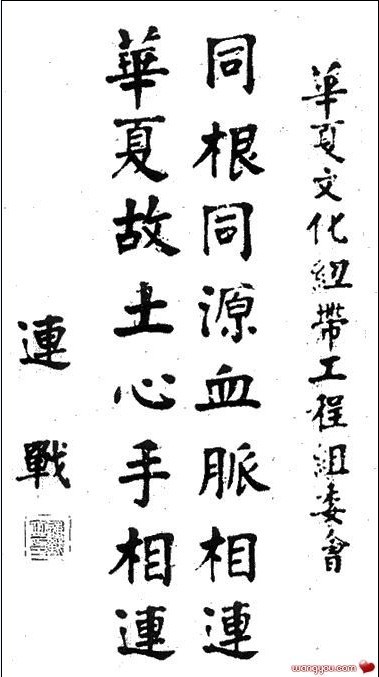 華夏文化紐帶工程組委會
同根同源血脈相連
華夏故土心手相連
連戰
wongyou.com